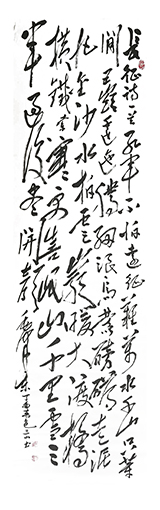 長征诗一首紅軍不怕遠征難萬水千山只等
閒五嶺逶迤騰細浪烏蒙磅礴走泥
丸金沙水拍雲崖暖大渡橋
橫鐵索寒更喜岷山千里雪三
軍過後盡開顏